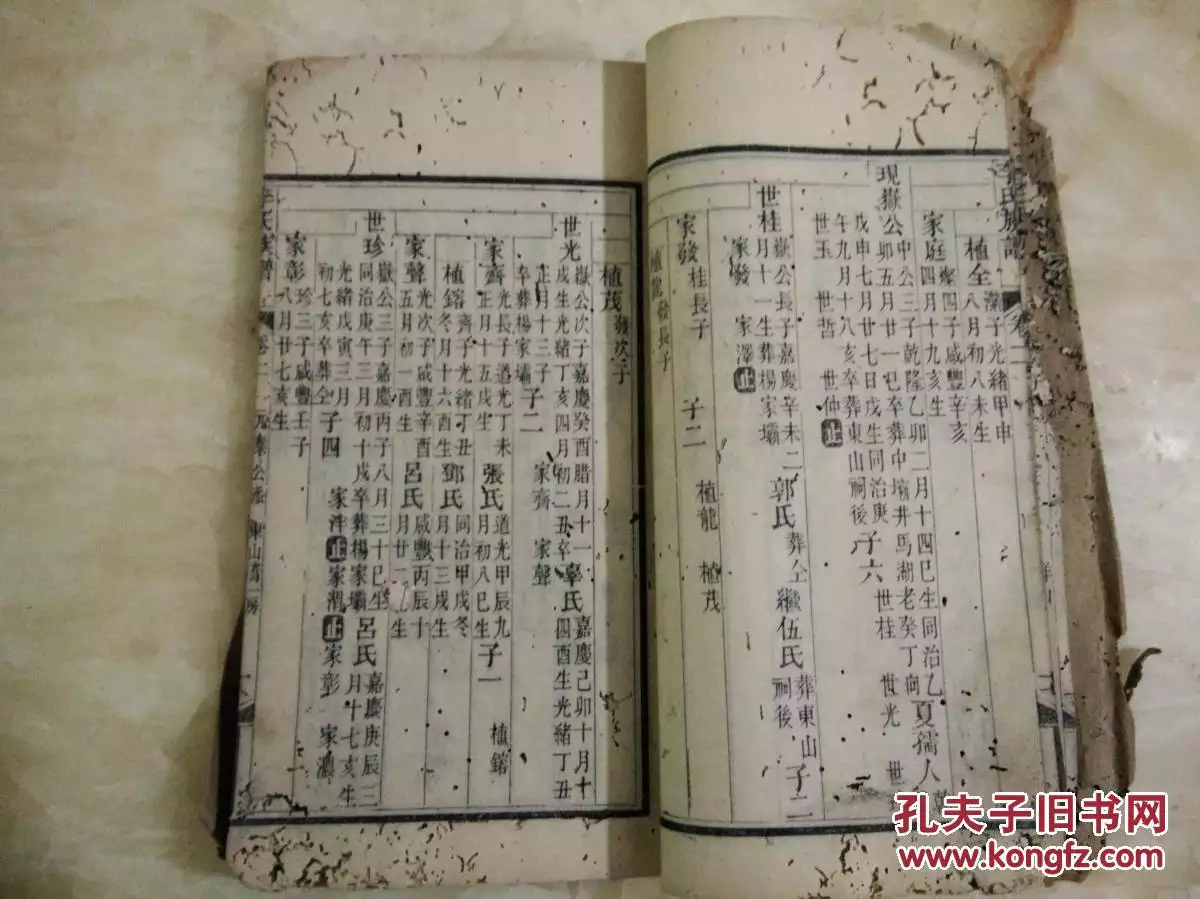 李氏族譜
卷二
植全 濚子光緒甲申
八月初八未生
家庭 燦四子咸豐辛亥
四月十九亥生
現嶽公 中公三子乾隆乙卯二月十四巳生同治乙
卯五月初一巳卒葬中壩井馬湖老癸丁向
夏孺人
戊申七月廿七日戌生同治庚
午九月十八亥卒葬東山祠後
子六 世桂 世光
世玉 世哲 世仲 止
世桂 嶽公長子嘉慶辛未二
月十一生葬楊家壩
郭氏 葬仝 繼伍氏 葬東山
祠後
子二
家發 家澤 止
家發 桂長子 子二 植龍 植茂
植龍 發長子
植茂 發次子
世光 嶽公次子嘉慶癸酉腊月十一
戌生光緒丁亥四月初二丑卒
辜氏 嘉慶己卯十月十
四酉生光緒丁丑
正月十三子
卒葬楊家壩
子二 家齊 家聲
家齊 光長子道光丁未
正月十五戌生
張氏 道光甲辰九
月初八巳生
子一 植鎔
植鎔 齊子光緒丁丑
冬月十六酉生
鄧氏 同治甲戌冬
月十三戌生
家聲 光次子咸豐辛酉
五月初一酉生
呂氏 咸豐丙辰十
月廿二 生
世珍 嶽公三子嘉慶丙子八月三十巳生
同治庚午三月初十戌卒葬楊家壩
呂氏 嘉慶庚辰三
月十七亥生
光緒戊寅三月
初七亥卒葬仝
子四 家泮 止 家渭 止 家彰 家濃
家彰 珍三子咸豐壬子
八月廿七亥生
李氏族譜
卷二